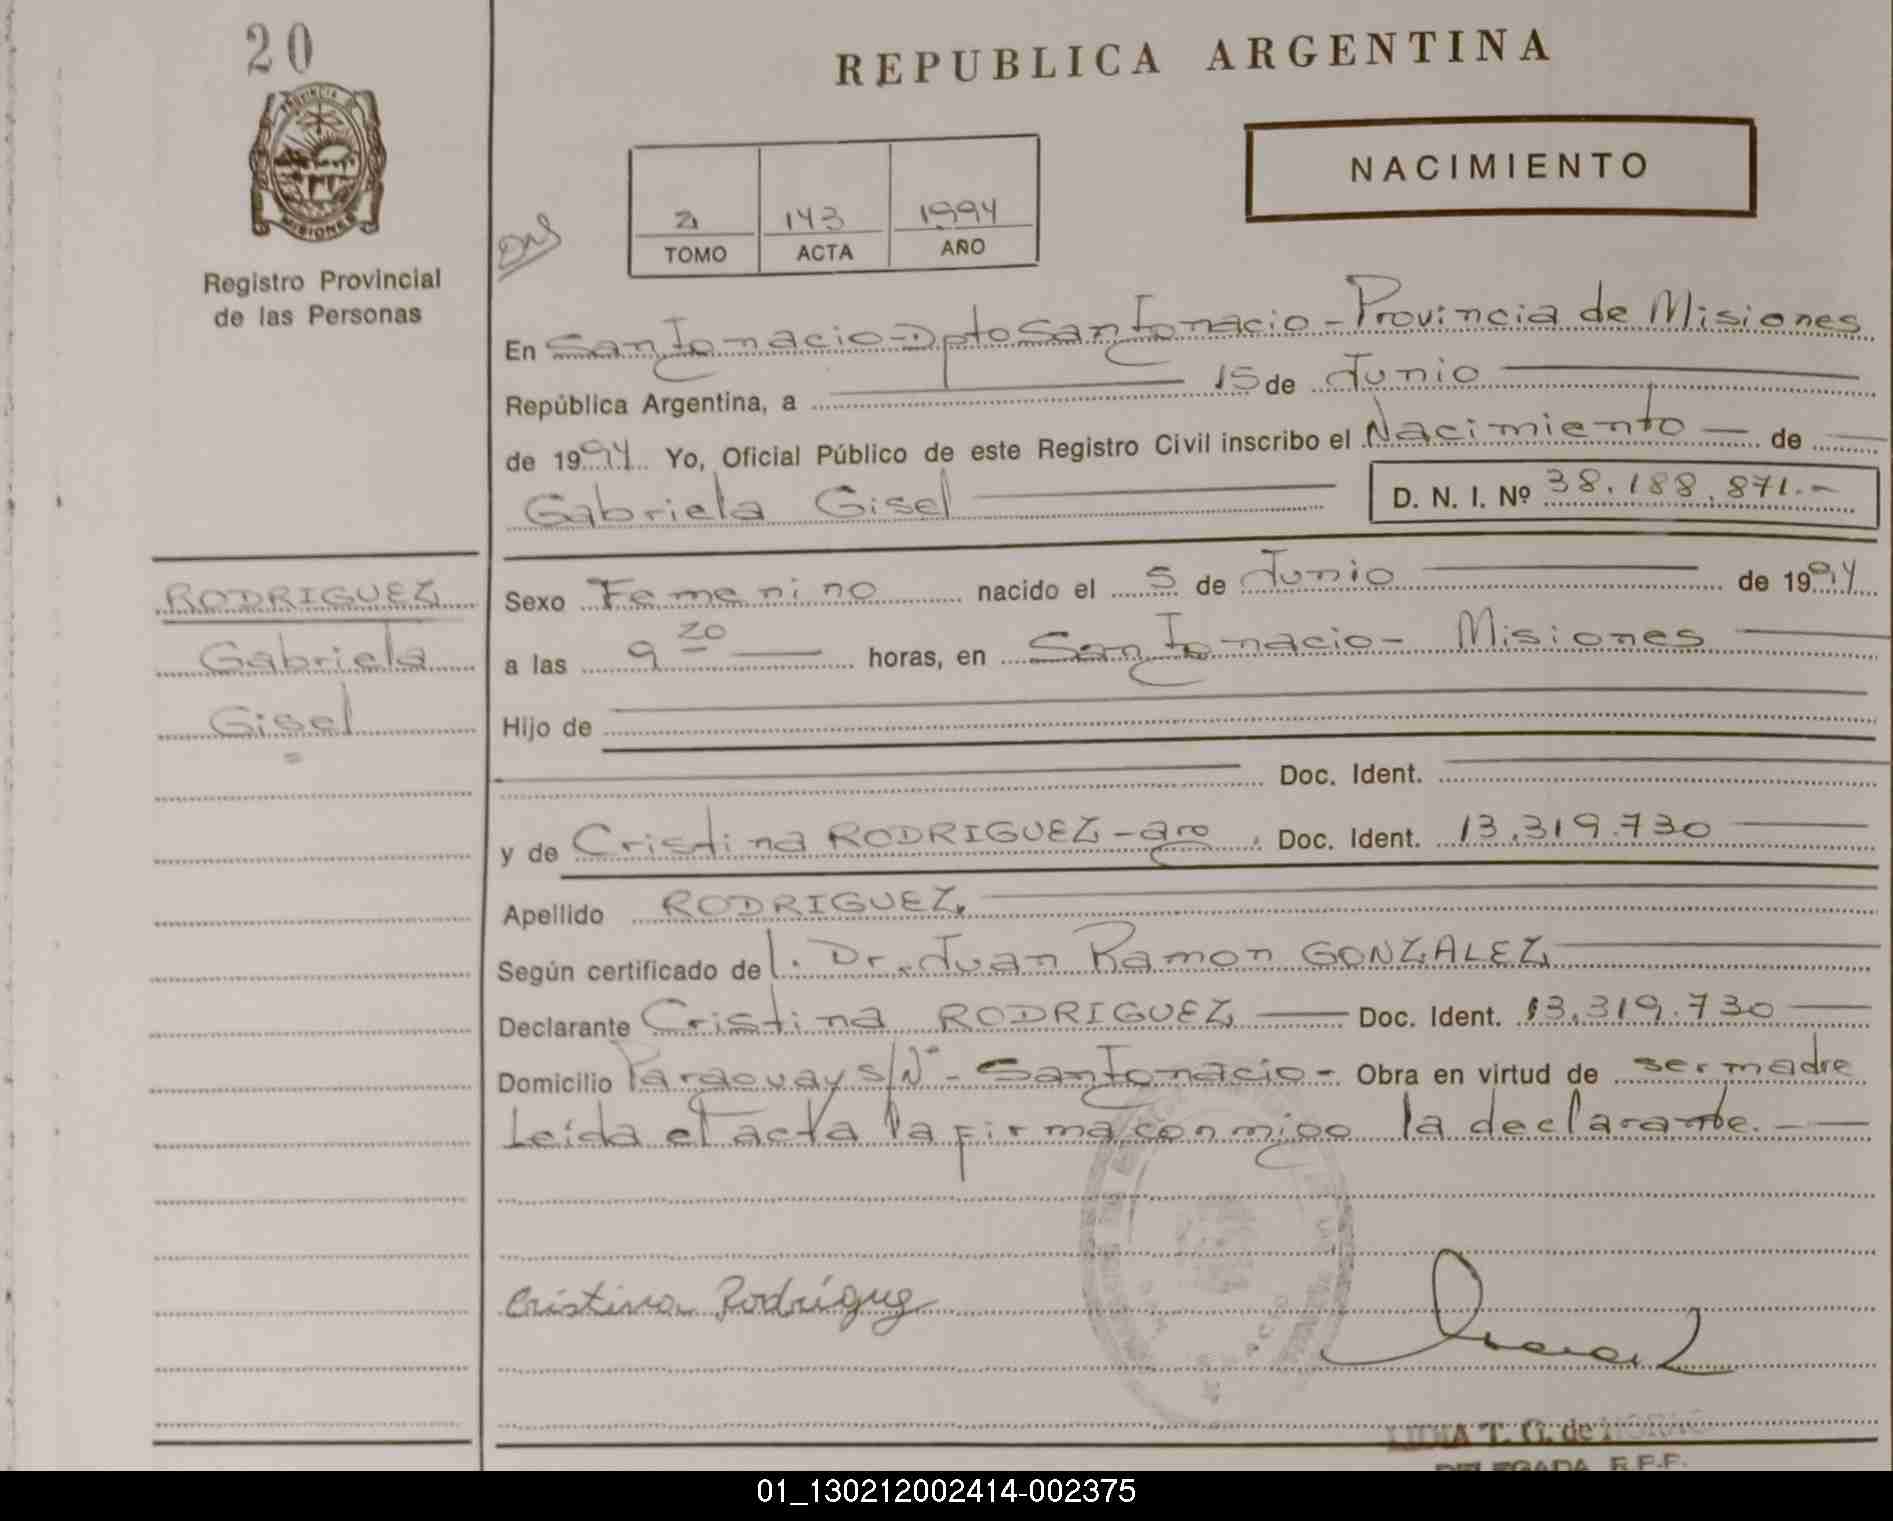 20
REPUBLICA ARGENTINA
PROVINCIA DE
MISIONES
Registro Provincial
de las Personas
NACIMIENTO
2 143 1994
TOMO ACTA AÑO
En San Ignacio-Dpto San Ignacio - Provincia de Misiones
República Argentina, a 15 de Junio
de 1994 Yo, Oficial Público de este Registro Civil inscribo el Nacimiento de
Gabriela Gisel D. N. I. Nº 38.188.871.-
RODRIGUEZ
Gabriela
Gisel
Sexo Femenino nacido el 5 de Junio de 1994
a las 9 20 horas, en San Ignacio - Misiones
Hijo de
Doc. Ident.
y de Cristina RODRIGUEZ - arg. Doc. Ident. 13.319.730
Apellido RODRIGUEZ.
Según certificado del. Dr. Juan Ramon GONZALEZ
Declarante Cristina RODRIGUEZ Doc. Ident. 13.319.730
Domicilio Paraguay s/Nº - San Ignacio - Obra en virtud de ser madre
Leída el acta la firma conmigo la declarante.
Cristina Rodríguez
LIDIA T. G. de
DELEGADA R.P.P.
01_130212002414-002375